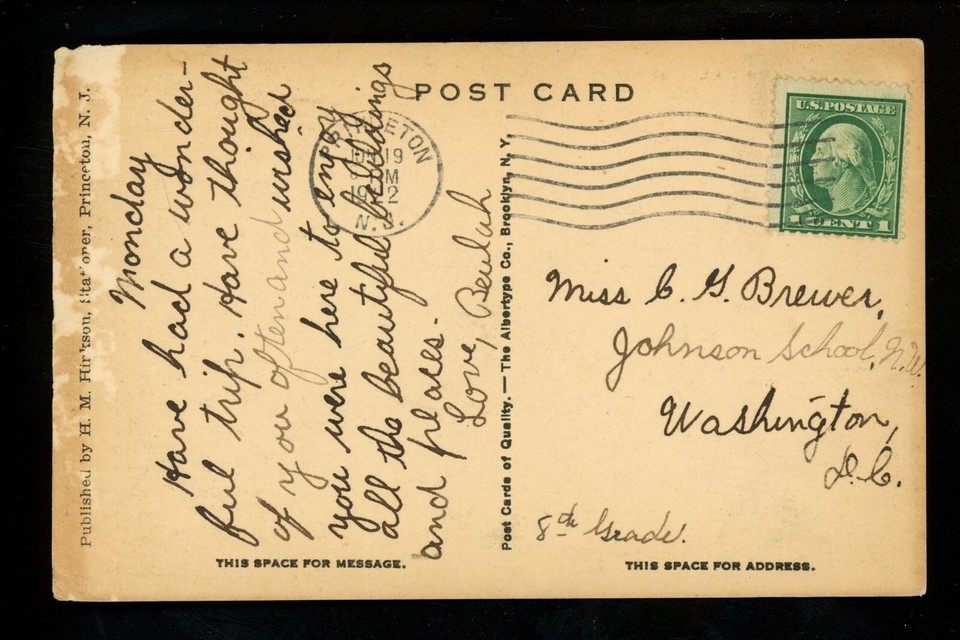 POST CARD
U.S. POSTAGE
1 CENT 1
PRINCETON
19
M
N.J.
Monday
Have had a wonder-
ful trip. Have thought
of you often and wished
you were here to enjoy
all the beautiful buildings
and places.
Love, Beulah
Miss C. G. Brewer,
Johnson School, N.W.
Washington,
D.C.
8th Grade.
THIS SPACE FOR MESSAGE.
THIS SPACE FOR ADDRESS.
Published by H. M. Hinkson, Stationer, Princeton, N. J.
Post Cards of Quality. — The Albertype Co., Brooklyn, N. Y.